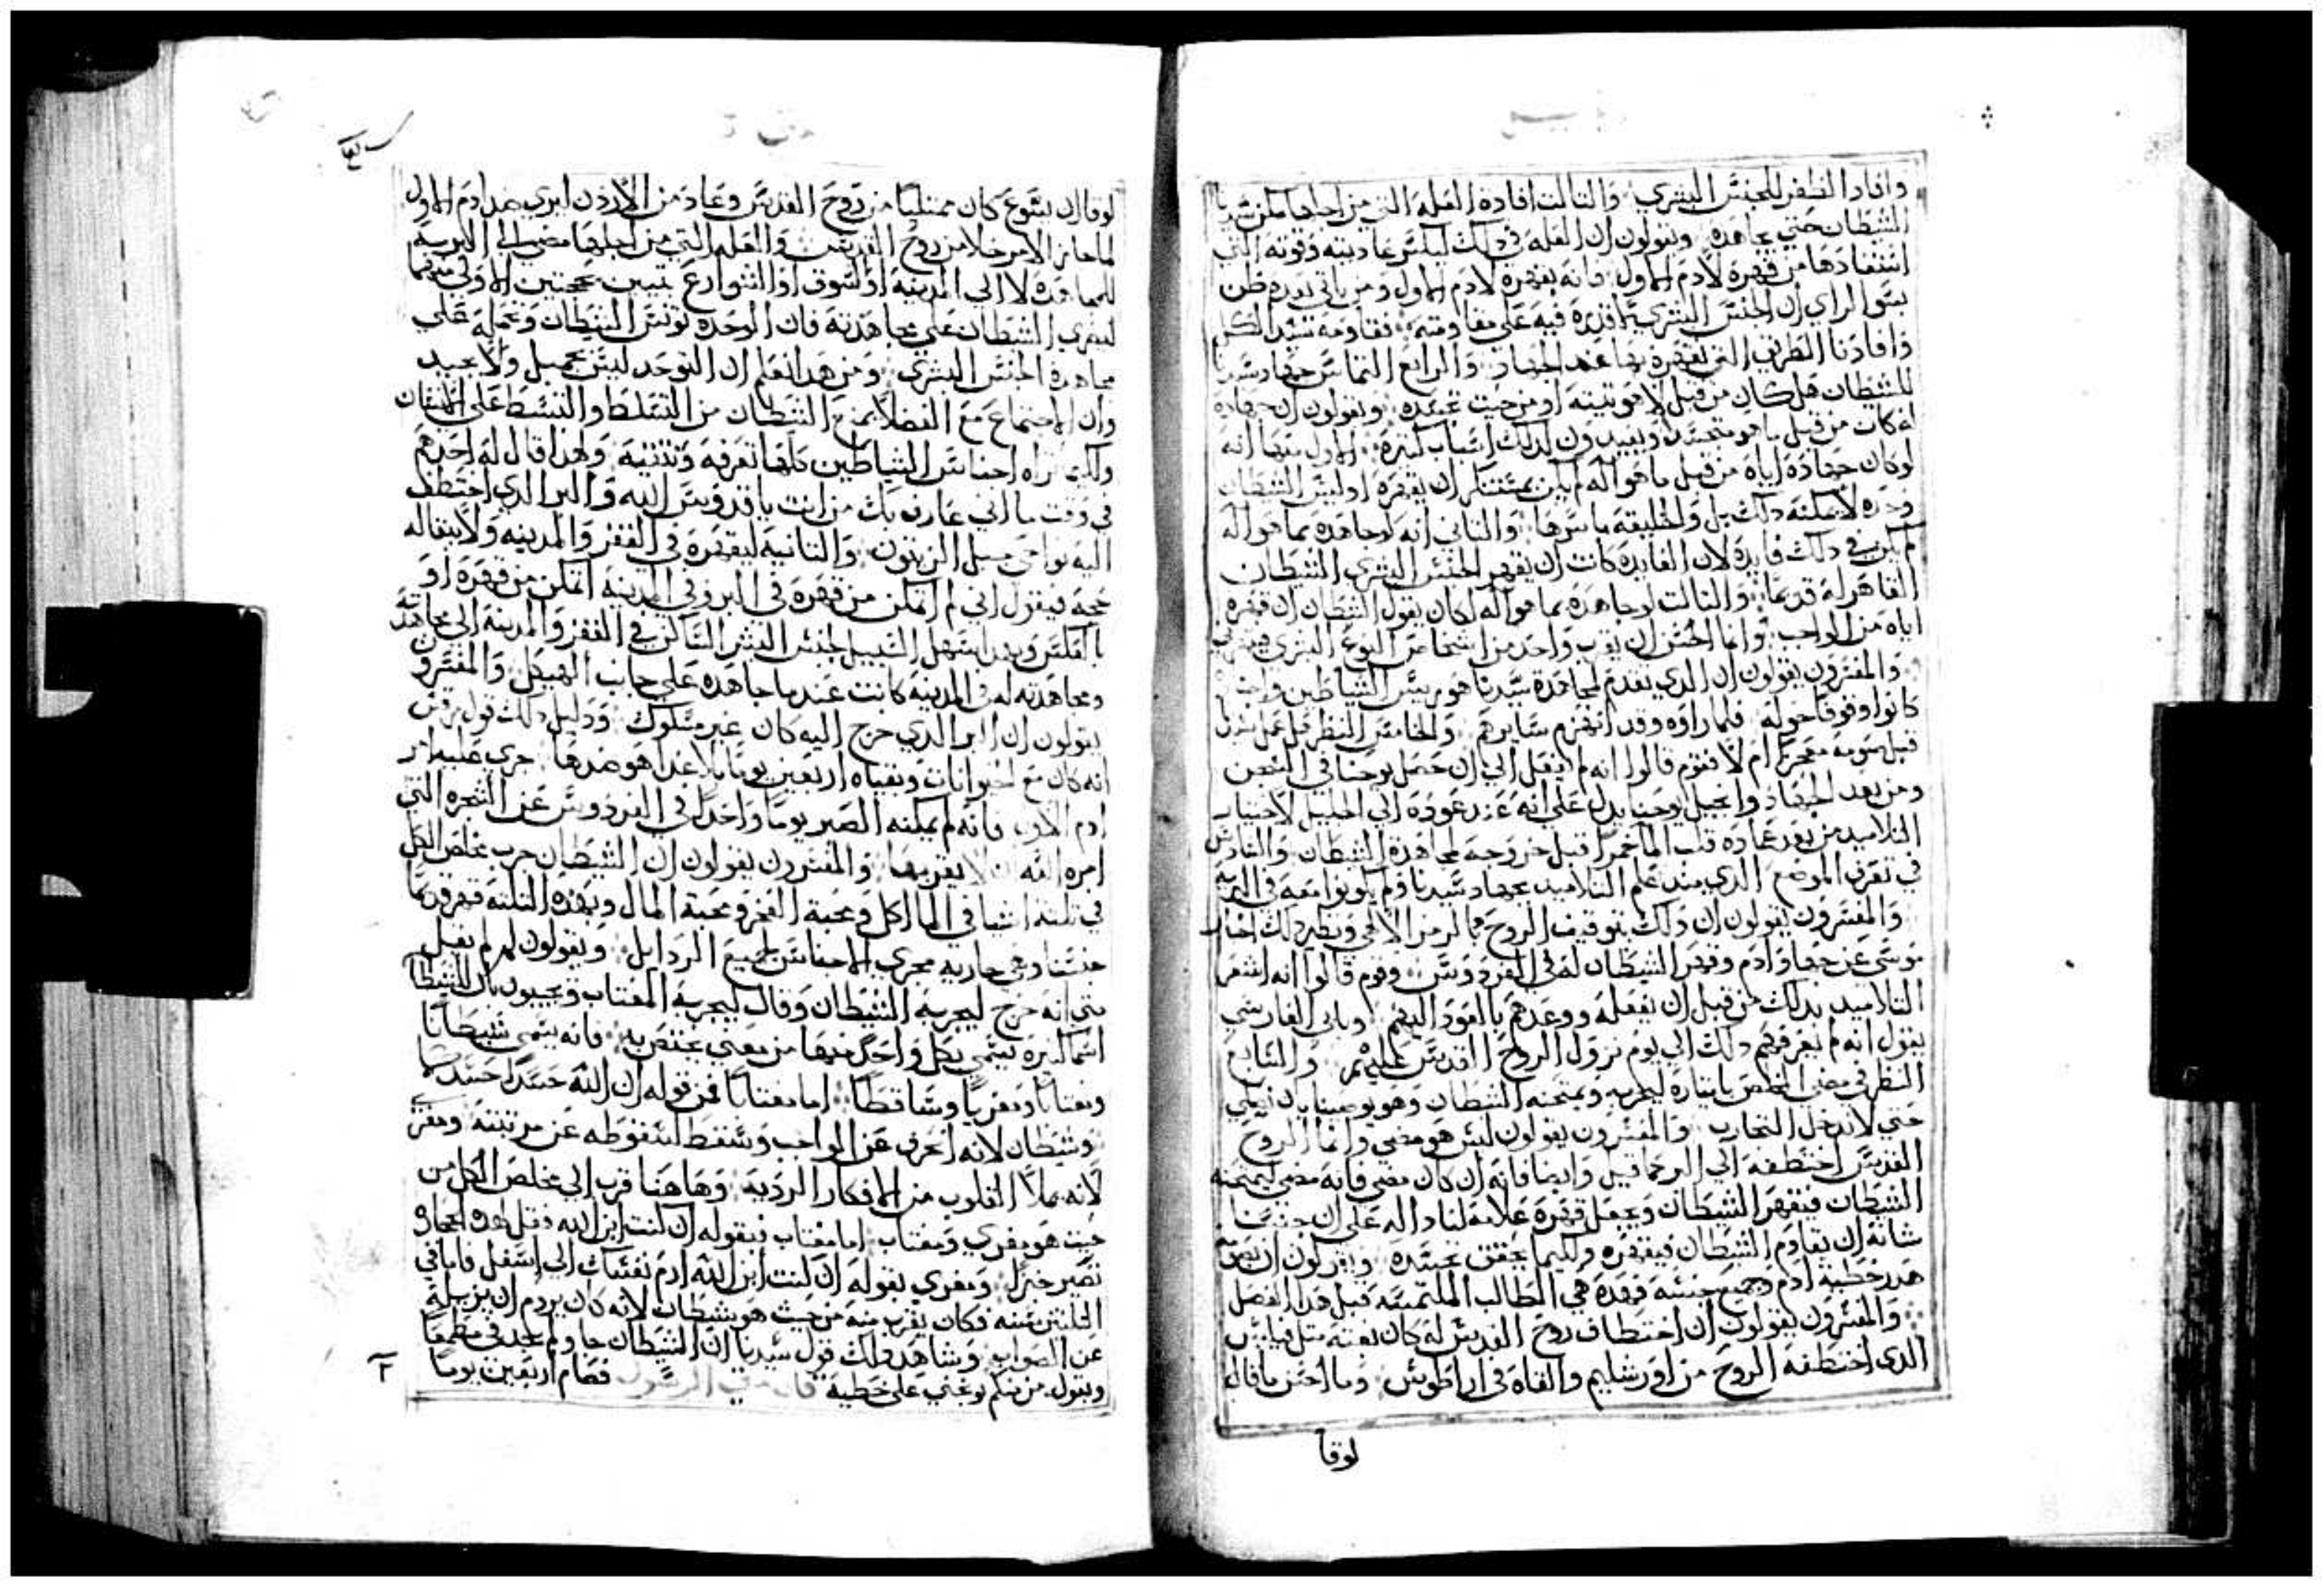 وافادا الظفر للجنس البشري والتالت افادة العله التي من اجلها مكن سيدنا
الشيطان حتي جاهده ويقولون ان العله في دلك ليكسر عاديته وقوته التي
استفادها من قهره لادم الاول فانه بقهره لادم الاول ومن ياتي بعده ظن
بسو الراي ان الجنس البشري لا قدره فيه على مقاومته فقاومه سيد الكل
وافادنا الطريق التي نقهره بها عند الجهاد والرابع التماس جهاد سيدنا
للشيطان هل كان من قبل لاهوتيته او من حيث تجسده ويقولون ان جهاده
له كان من قبل ما هو متجسد ويفيدون لدلك اسباب كتيره الاول منها انه
لو كان جهاده اياه من قبل ما هو اله لم يكن بمستنكر ان يقهره اد ليس الشيطان
وحده لا يمكنه دلك بل والخليقه باسرها والتاني انه لو جاهده بما هو اله
لم يكن في دلك فايده لان الفايده كانت ان يقهر الجنس البشري الشيطان
القاهر له قديما والتالت لو جاهده بما هو اله لكان يقول الشيطان ان قهره
اياه من الواجب وانما الحسن ان يقهره واحد من اشخاص النوع البشري
والمفسرون يقولون ان الدي تقدم لمجاهدة سيدنا هو رييس الشياطين واجناده
كانوا وقوفا حوله فلما راوه وقد انهزم سايرهم والخامس النظر هل عمل سيدنا
قبل صومه معجزا ام لا فقوم قالوا انه لم يفعل الي ان حصل يوحنا في السجن
ومن بعد الجهاد وانجيل يوحنا يدل على انه عند عوده الي الجليل لاختيار
التلاميد من بعد عماده قلب الما خمرا قبل خروجه لمجاهدة الشيطان والسادس
في تعرف الموضع الدي منه علم التلاميد بجهاد سيدنا ولم يكونوا معه في البريه
والمفسرون يقولون ان دلك بتوقيف الروح بما لرمز الالهي ونظير دلك اخبار
موسى عن جهاد ادم وقهر الشيطان له في الفردوس وقوم قالوا انه اشعر
التلاميد بدلك من قبل ان يفعله ووعدهم بالعود اليهم وباني الفارسي
يقول انه لم يعرفهم دلك الي يوم نزول الروح القدس عليهم والسابع
النظر في مضي المخلص بايتاره ليجربه ويمتحنه الشيطان وهو يوصينا بان نصلي
حتي لا ندخل التجارب والمفسرون يقولون ليس هو مضى وانما الروح
القدس اختطفه الي البر كما قيل وايضا فانه ان كان مضى فانه مضى ليمتحنه
الشيطان فيقهر الشيطان ويجعل قهره علامة لنا داله على ان جنسنا
شانه ان يقاوم الشيطان فيقهره ولكيما يحقق تجسده ويقولون ان
هدر خطية ادم وجميع جنسه فهده هي المطالب الملتمسه قبل هدا الفصل
والمفسرون يقولون ان اختطاف روح القدس له كان بغته متل فيلبس
الدي اختطفه الروح من اورشليم والقاه في اراطوس وما احسن ما قال
لوقا
لوقا ان يسوع كان ممتليا من روح القدس وعاد من الاردن ليري ضد ادم الاول
لما حاز الامر خلا من روح القدس والعله التي من اجلها مضى الي البريه
للمجاهده لا الي المدينه او السوق او الشوارع تتبين بحجتين الاولى منهما
ليغري الشيطان على مجاهدته فان الوحده تونس الشيطان وتحمله على
مجاهدة الجنس البشري ومن هدا نعلم ان التوحد ليس بجميل ولا بجيد
وان الاجتماع مع الفضلا يمنع الشيطان من التسلط والتنشط على الانسان
ولكن تراه اجناس الشياطين كلها تعرفه وتتقيه ولهدا قال له احدهم
في وقت ما اني عارف بك من انت يا قدوس الله والبر الدي اختطف
اليه نواحي جبل الزيتون والتانيه ليقهره في القفر والمدينه ولا يبقا له
حجه فيقول اني لم اتمكن من قهره في البر وفي المدينه اتمكن من قهره او
بالعكس وبهدا سهل السبيل لجنس البشر الساكن في القفر والمدينه الى مجاهدته
ومجاهدته له في المدينه كانت عند ما جاهده على جانب الهيكل والمفسرون
يقولون ان البر الدي خرج اليه كان غير مسلوك ودليل دلك قول مرقس
انه كان مع الحيوانات وبقياه اربعين يوما بلا غدا هو ضد ما جرى عليه امر
ادم الاول فانه لم يمكنه الصبر يوما واحدا في الفردوس عن الشجره التي
امره الله ان لا يقربها والمفسرون يقولون ان الشيطان جرب مخلص الكل
في تلته اشيا في الماكل ومحبة الفخر ومحبة المال وبهده التلته قهر قديما
جنسنا وهي جاريه مجرى الاجناس لجميع الردايل ويقولون لم لم يقل
متى انه خرج ليجربه الشيطان وقال ليجربه المغتاب ويجيبون بان للشيطان
اسما كتيره يسمى بكل واحد منها من معنى يختص به فانه يسمى شيطانا
ومغتابا ومغريا وساقطا اما مغتابا فمن قوله ان الله حسدا حسدكما
وشيطان لانه انحرف عن الواجب وسقط لسقوطه عن مرتبته ومغري
لانه يملا القلوب من الافكار الرديه وهاهنا قرب الي مخلص الكل من
حيت هو مغري ومغتاب اما مغتاب فبقوله ان كنت ابن الله فقل لهده الحجاره
تصير خبزا ومغري بقوله ان كنت ابن الله ارم نفسك الى اسفل فاما في
التلتين سنه فكان يقرب منه من حيت هو شيطان لانه كان يروم ان يزيله
عن الصواب وشاهد دلك قول سيدنا ان الشيطان جا ولم يجد في مطمعا
ويقول من منكم يوبخني على خطيه قال متى الرسول فصام اربعين يوما